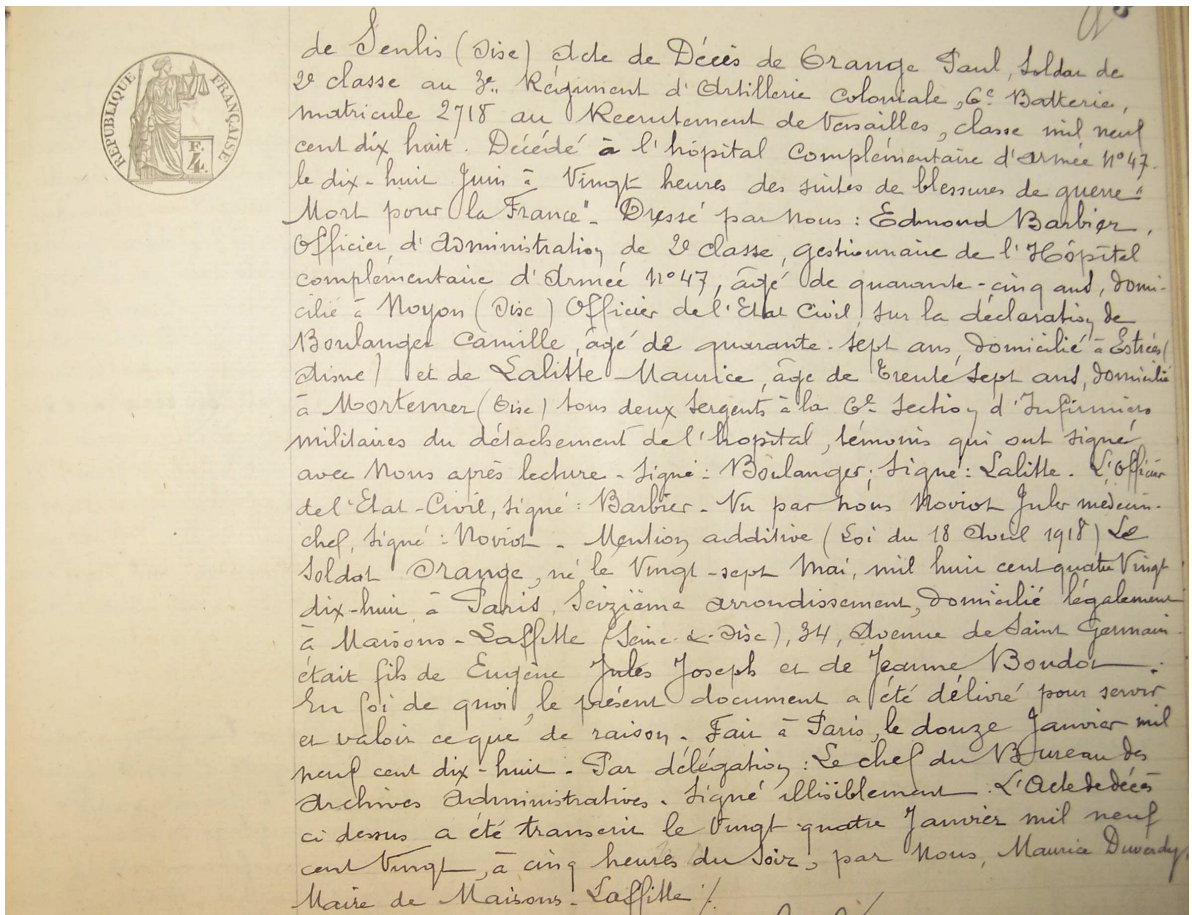 RÉPUBLIQUE FRANÇAISE
F. 4.
de Senlis (Oise) Acte de Décès de Orange Paul, Soldat de
2e classe au 3e Régiment d'Artillerie Coloniale, 6e Batterie,
matricule 2718 au Recrutement de Versailles, classe mil neuf
cent dix huit. Décédé à l'hôpital Complémentaire d'Armée N°47.
le dix-huit Juin à Vingt heures des suites de blessures de guerre "
Mort pour la France" - Dressé par Nous : Edmond Barbier,
Officier d'Administration de 2e classe, gestionnaire de l'Hôpital
complémentaire d'Armée N°47, âgé de quarante-cinq ans, domi-
cilié à Noyon (Oise) Officier de l'Etat Civil, sur la déclaration de
Boulanger Camille, âgé de quarante-sept ans, domicilié à Estrées (
Aisne) et de Lalitte Maurice, âgé de trente sept ans, domicilié
à Mortemer (Oise) tous deux Sergents à la 6e Section d'Infirmiers
militaires du détachement de l'hopital, témoins qui ont signé
avec Nous après lecture - Signé : Boulanger; Signé : Lalitte. L'Officier
de l'Etat-Civil, Signé : Barbier - Vu par Nous Noviot Jules médecin-
chef, Signé : Noviot - Mention additive (Loi du 18 Avril 1918) Le
Soldat Orange, né le Vingt-sept Mai, mil huit cent quatre Vingt
dix-huit à Paris, Seizième arrondissement, domicilié légalement
à Maisons-Laffitte (Seine-&-Oise), 34, Avenue de Saint Germain.
était fils de Eugène Jules Joseph et de Jeanne Boudot.
En foi de quoi, le présent document a été délivré pour servir
et valoir ce que de raison - Fait à Paris, le douze Janvier mil
neuf cent dix-huit - Par délégation : Le chef du Bureau des
Archives Administratives - Signé illisiblement. L'Acte de décès
ci dessus a été transcrit le Vingt-quatre Janvier mil neuf
cent Vingt, à cinq heures du Soir, par Nous, Maurice
Maire de Maisons-Laffitte ./.